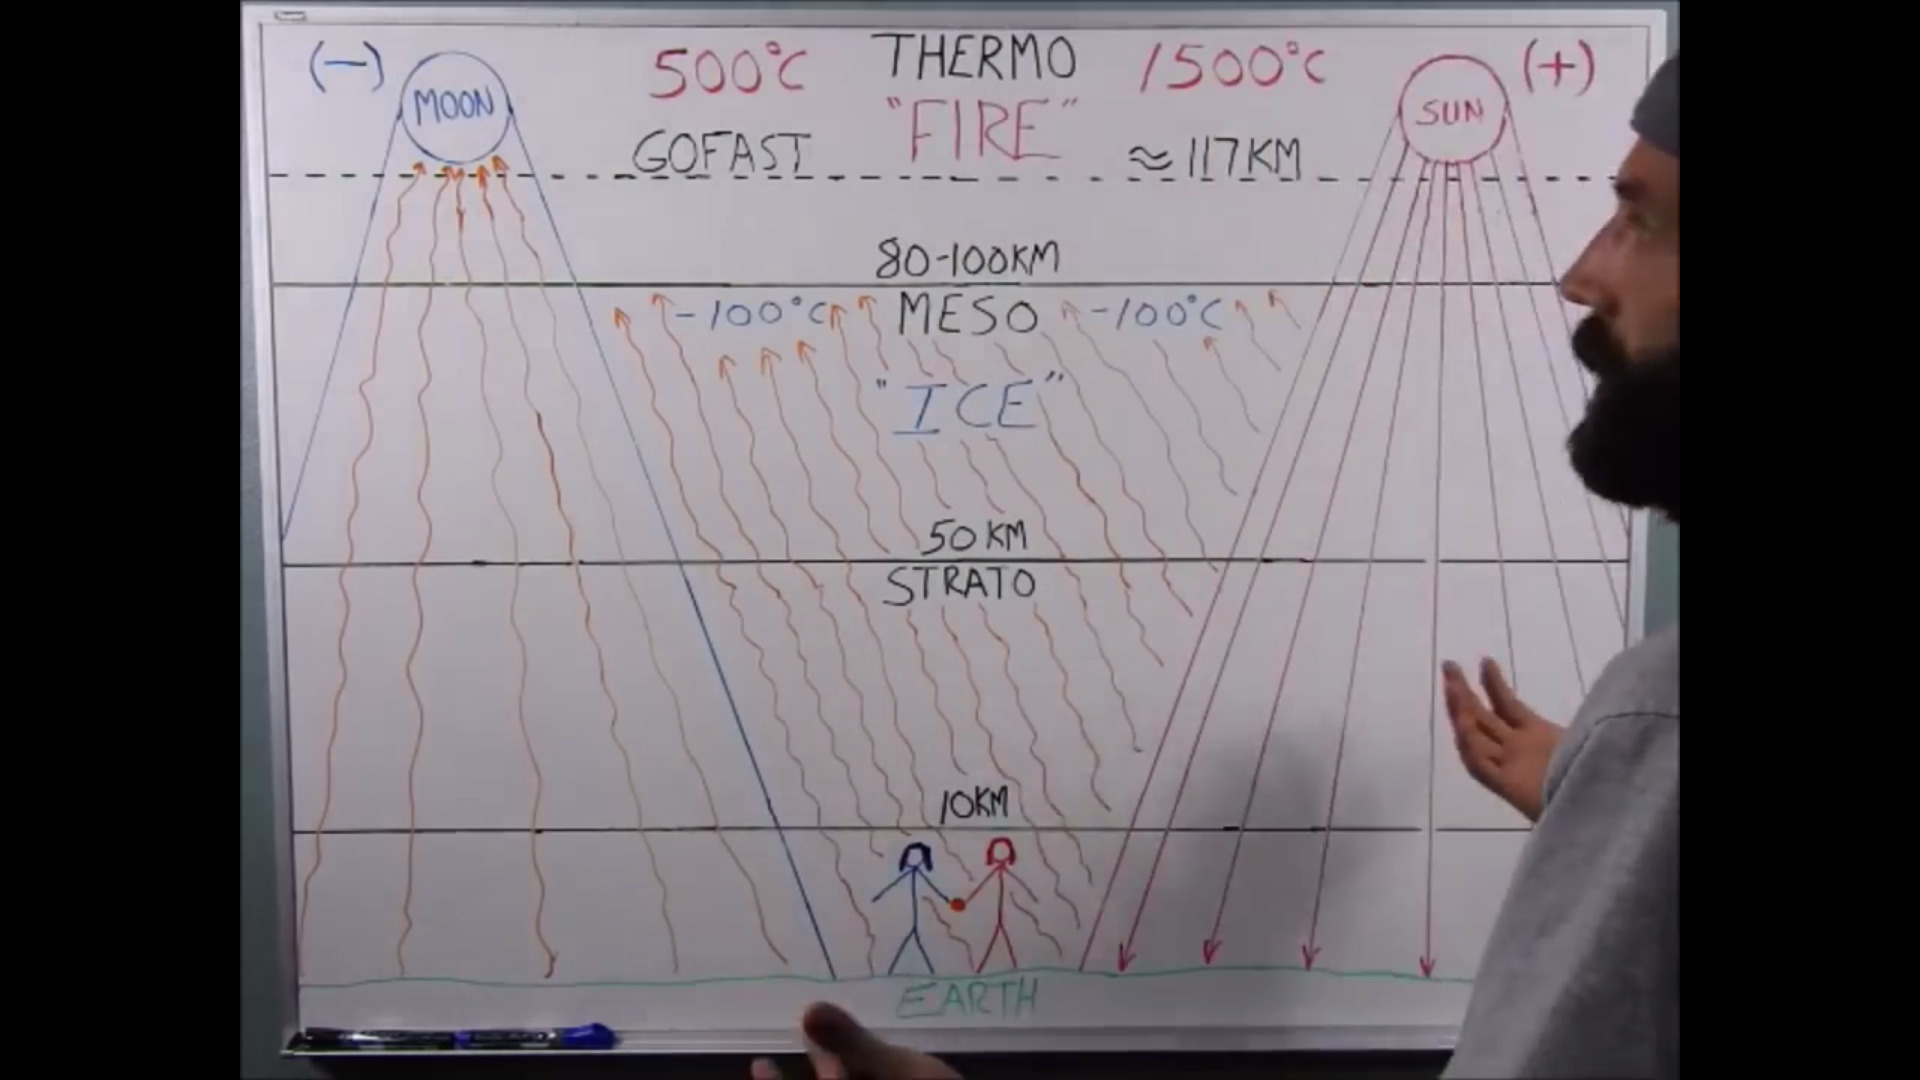 (-) MOON 500°C THERMO 1500°C SUN (+)
GOFAST "FIRE" ≈ 117KM
80-100KM
-100°C MESO -100°C
"ICE"
50KM
STRATO
10KM
EARTH